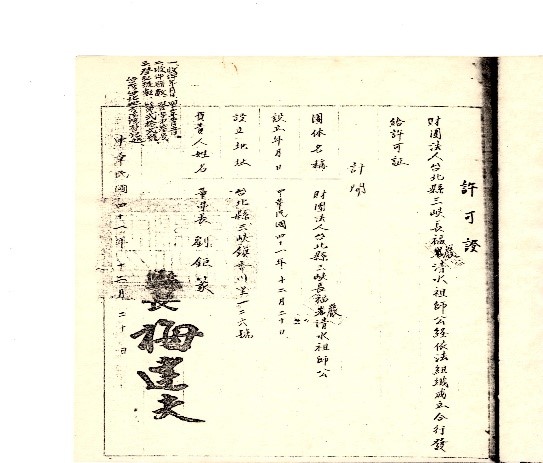 許可證
財團法人台北縣三峽長福巖清水祖師公經依法組織成立合行發
給許可証
計開
團体名稱 財團法人台北縣三峽長福巖清水祖師公
設立年月日 中華民國四十一年十二月二十日
設立地址 台北縣三峽鎮秀川里一二六號
負責人姓名 董事長 劉鉅篆
縣長 梅達夫
中華民國四十一年十二月二十日